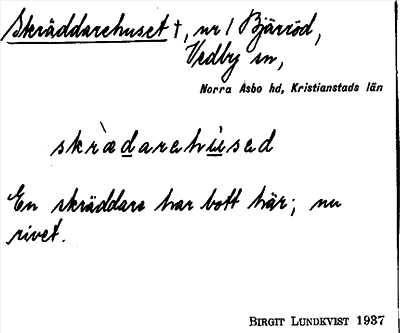 Skräddarehuset †, nr 1 Bjärröd,
Vedby sn,
Norra Åsbo hd, Kristianstads län
skràdarehùsed
En skräddare har bott här; nu
rivet.
BIRGIT LUNDKVIST 1937